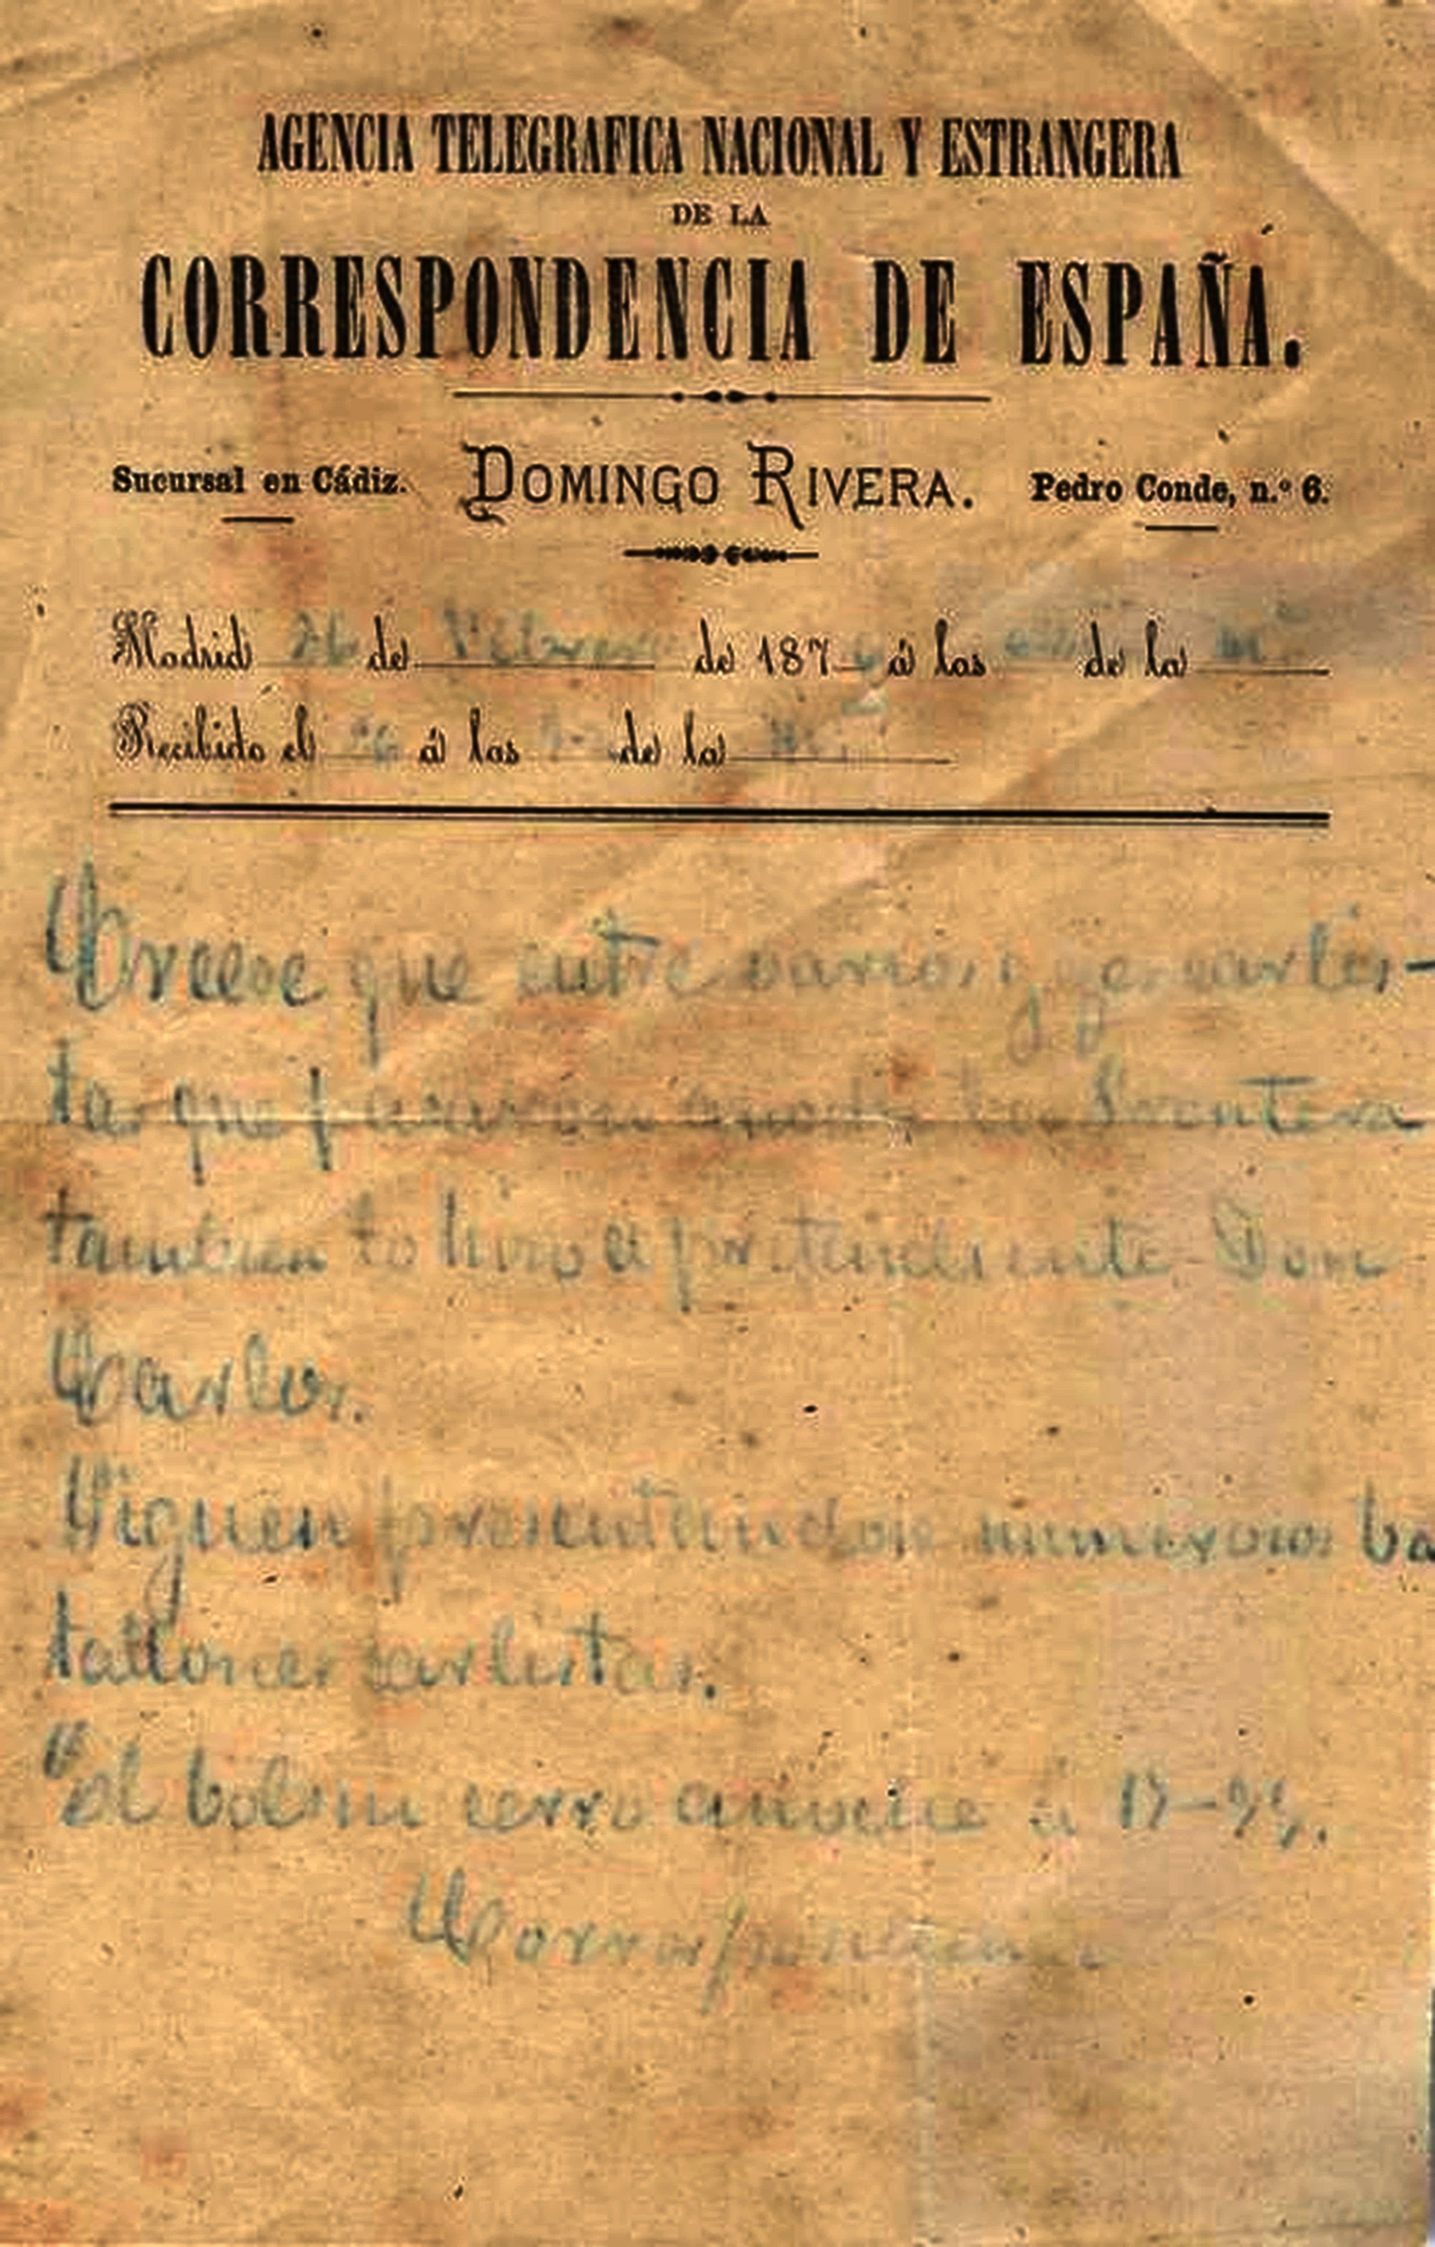 AGENCIA TELEGRAFICA NACIONAL Y ESTRANGERA
DE LA
CORRESPONDENCIA DE ESPAÑA.
Sucursal en Cádiz. DOMINGO RIVERA. Pedro Conde, n.º 6.
Madrid 26 de de 187 á las de la
Recibido el á las de la
Creese que entre varios carlis-
tas que la frontera
tambien lo hizo el pretendiente Don
Carlos.
Siguen presentandose numerosos ba
tallones carlistas.
El bolsin cerro anoche á